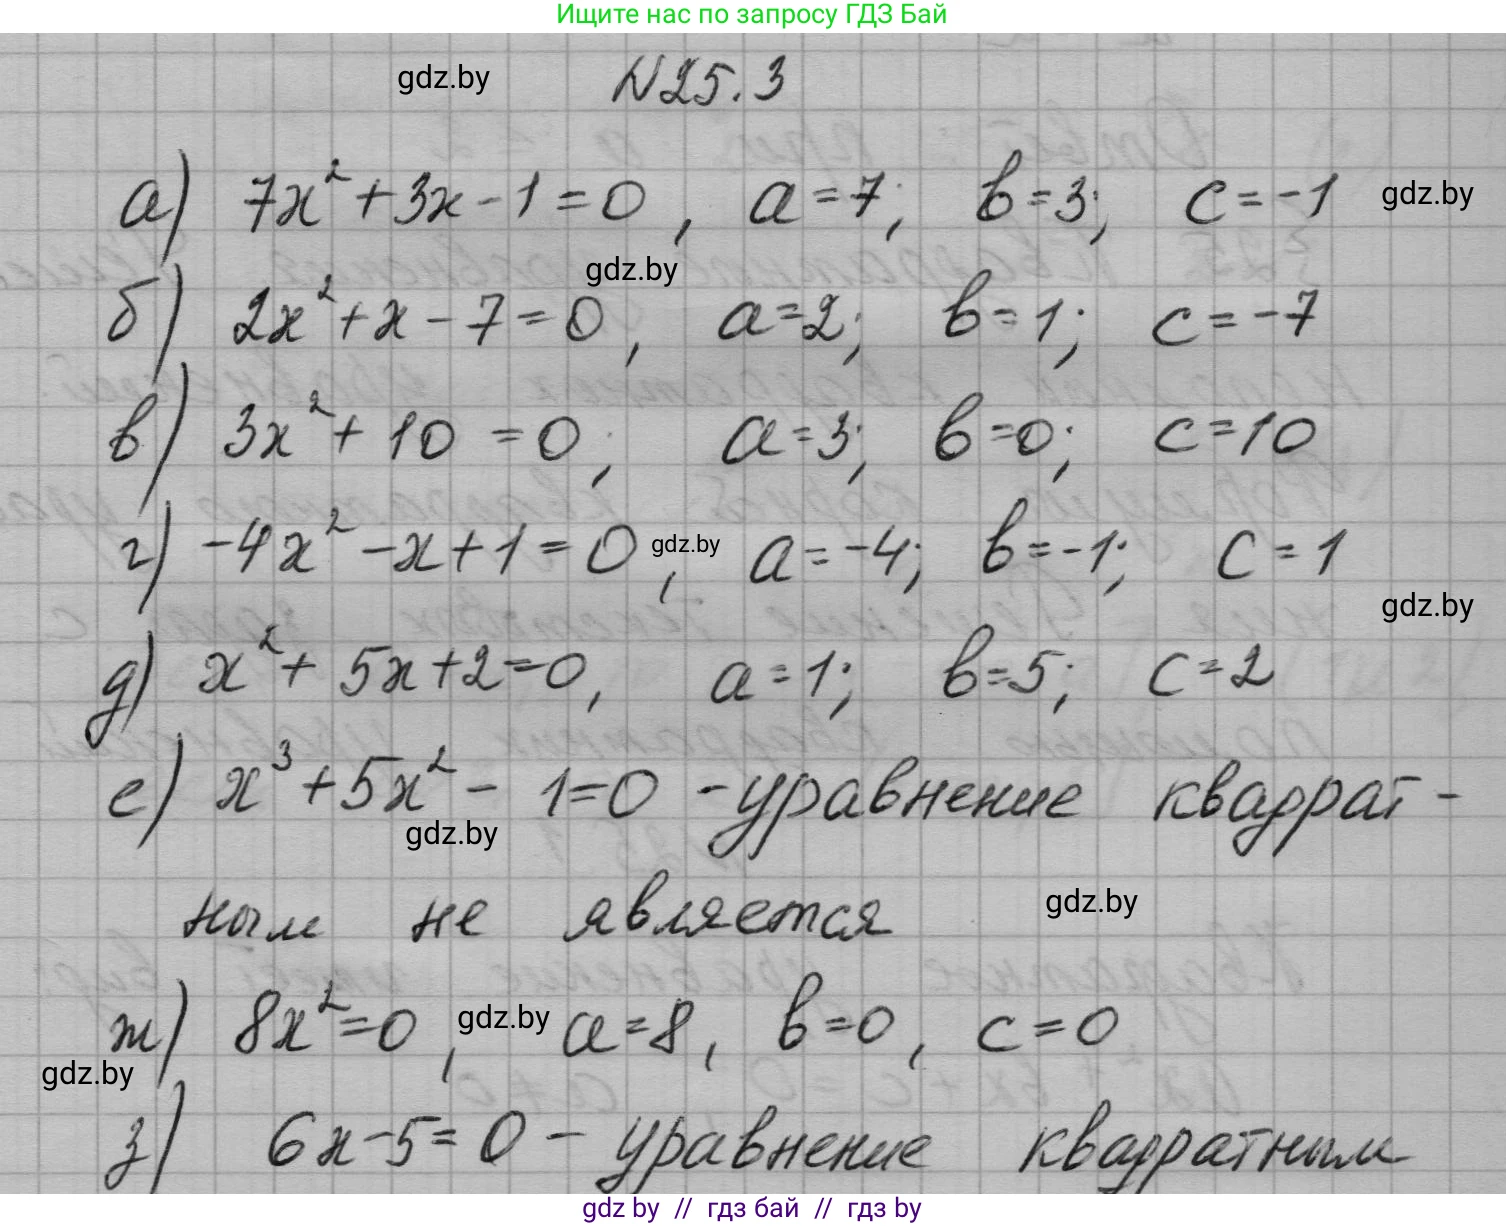 Ищите нас по запросу ГДЗ Бай
gdz.by N25.3
а) 7x² + 3x - 1 = 0, a = 7; в = 3; c = -1 gdz.by
gdz.by
б) 2x² + x - 7 = 0, a = 2; в = 1; c = -7
в) 3x² + 10 = 0; a = 3; в = 0; c = 10
г) -4x² - x + 1 = 0, gdz.by a = -4; в = -1; c = 1
gdz.by
д) x² + 5x + 2 = 0, a = 1; в = 5; c = 2
е) x³ + 5x² - 1 = 0 - уравнение квадрат-
gdz.by
ным не является gdz.by
ж) 8x² = 0, gdz.by a = 8, в = 0, c = 0
gdz.by
з) 6x - 5 = 0 - уравнение квадратным
gdz by // гдз бай // гдз by